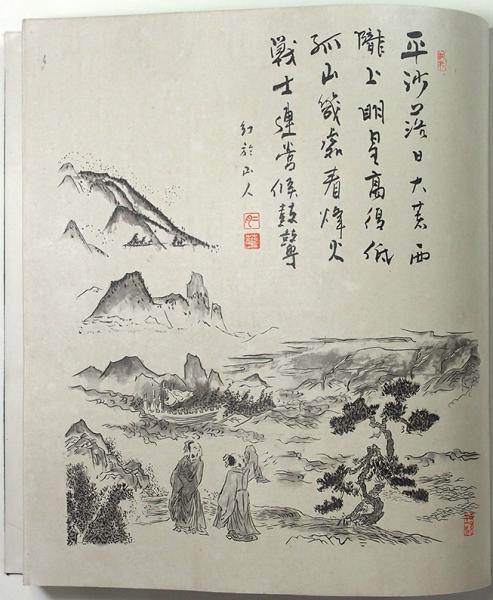 平沙落日大荒西
隴上明星高復低
孤山幾處看烽火
戰士連營候鼓鼙
紅於山人